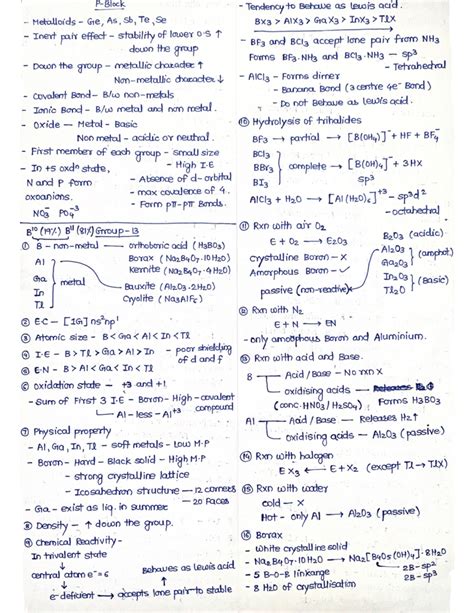 P-Block
- Metalloids - Ge, As, Sb, Te, Se
- Inert pair effect - stability of lower O.S ↑
down the group
- Down the group - metallic character ↑
Non-metallic character ↓
- Covalent Bond - B/w non-metals
- Ionic Bond - B/w metal and non metal.
- Oxide - Metal - Basic
Non metal - acidic or neutral.
- First member of each group - small size
- High I.E
- Absence of d-orbital
- max covalence of 4.
- Form pπ-pπ Bonds
- In +5 oxdn state,
N and P form
oxoanions.
NO3⁻ PO4⁻³
B¹⁰ (19%) B¹¹ (81%) Group-13
① B - non-metal → orthoboric acid (H3BO3)
Borax (Na2B4O7.10H2O)
Kernite (Na2B4O7.4H2O)
Al
Ga
In
Tl
metal
Bauxite (Al2O3.2H2O)
Cryolite (Na3AlF6)
② E.C - [IG] ns² np¹
③ Atomic size - B < Ga < Al < In < Tl
④ I.E - B > Tl > Ga > Al > In - poor shielding
of d and f
⑤ E.N - B > Al < Ga < In < Tl
⑥ oxidation state - +3 and +1
- Sum of First 3 I.E - Boron - High - covalent
compound
Al - less - Al⁺³
⑦ Physical property
- Al, Ga, In, Tl - soft metals - Low M.P
- Boron - Hard - Black solid - High M.P
- strong crystalline lattice
- Icosahedron structure - 12 corners
20 Faces
- Ga - exist as liq. in summer
⑧ Density - ↑ down the group.
⑨ Chemical Reactivity -
In trivalent state
central atom e⁻ = 6
Behaves as Lewis acid
e-deficient → accepts lone pair → to stable
- Tendency to Behave as lewis acid.
BX3 > AlX3 > GaX3 > InX3 > TlX
- BF3 and BCl3 accept lone pair from NH3
Forms BF3.NH3 and BCl3.NH3 - sp³
- Tetrahedral
- AlCl3 - Forms dimer
- Banana Bond (3 centre 4e⁻ Bond)
- Do not Behave as Lewis acid.
⑩ Hydrolysis of trihalides
BF3 → partial → [B(OH)4]⁻ + HF + BF4⁻
BCl3
BBr3
BI3
complete → [B(OH)4]⁻ + 3HX
sp³
AlCl3 + H2O → [Al(H2O)6]⁺³ - sp³d²
- octahedral
⑪ Rxn with air O2
E + O2 → E2O3
crystalline Boron - X
Amorphous Boron - ✓
passive (non-reactive)
B2O3 (acidic)
Al2O3
Ga2O3
(amphot)
In2O3
Tl2O
(Basic)
⑫ Rxn with N2
E + N → EN
- only amorphous Boron and Aluminium.
⑬ Rxn with acid and Base.
B - Acid/Base - No rxn X
oxidising acids -
(conc. HNO3/H2SO4) Forms H3BO3
Al - Acid/Base - Releases H2 ↑
oxidising acids - Al2O3 (passive)
⑭ Rxn with halogen
EX3 ← E + X2 (except Tl → TlX)
⑮ Rxn with water
cold - X
Hot - only Al → Al2O3 (passive)
⑯ Borax
- White crystalline solid
- Na2B4O7.10H2O → Na2[B4O5(OH)4].8H2O
- 5 B-O-B linkange
2B-sp²
2B-sp³
- 8 H2O of crystallisation